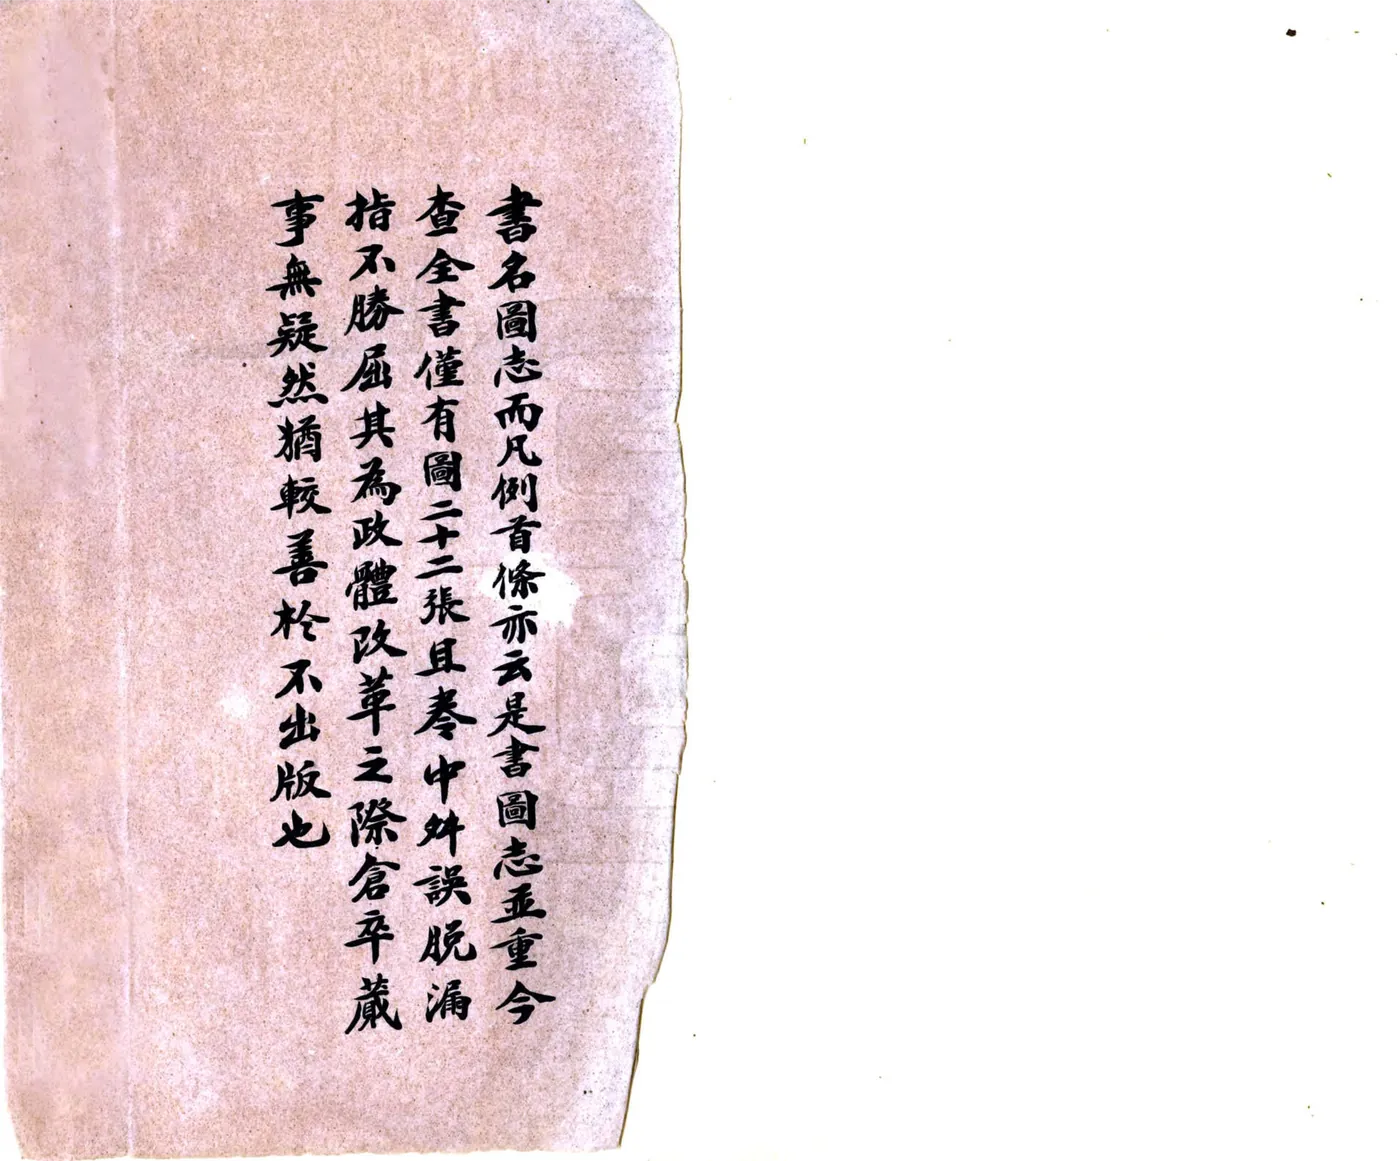 書名圖志而凡例首條亦云是書圖志並重今
查全書僅有圖二十二張且卷中舛誤脫漏
指不勝屈其為政體改革之際倉卒蕆
事無疑然猶較善於不出版也